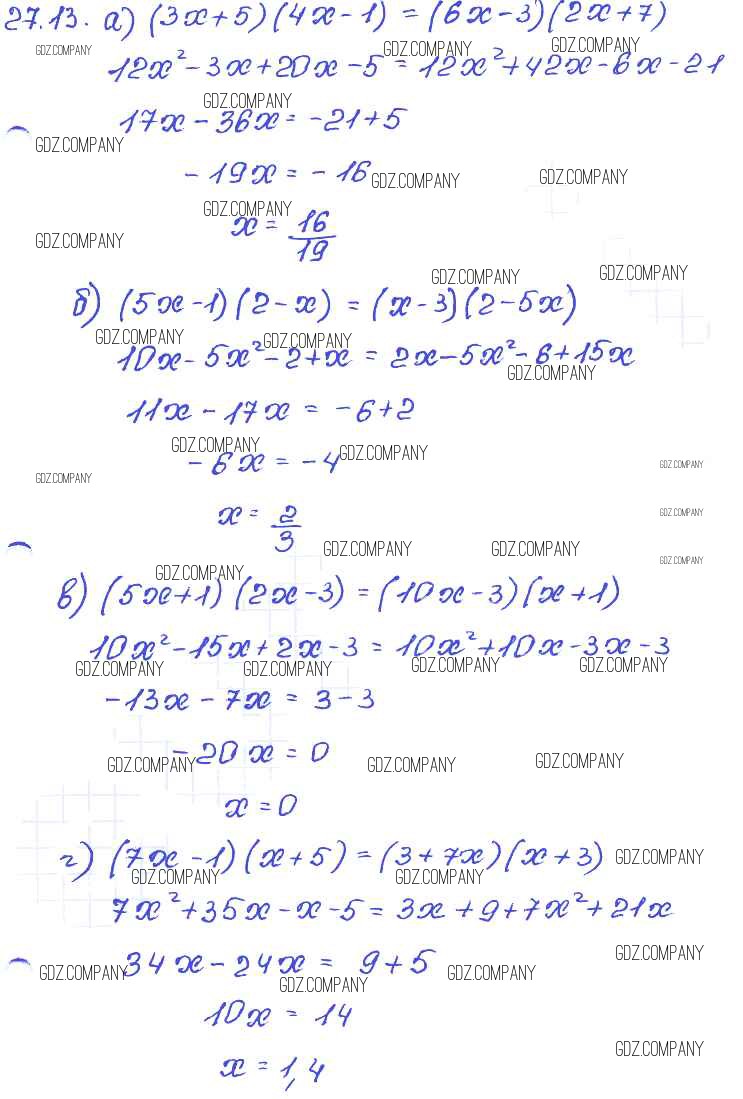 27.13. а) (3x+5)(4x-1) = (6x-3)(2x+7)
GDZ.COMPANY GDZ.COMPANY GDZ.COMPANY
12x²-3x+20x-5 = 12x²+42x-6x-21
GDZ.COMPANY
17x-36x = -21+5
GDZ.COMPANY
-19x = -16
GDZ.COMPANY GDZ.COMPANY
GDZ.COMPANY
x = 16/19
GDZ.COMPANY
GDZ.COMPANY GDZ.COMPANY
б) (5x-1)(2-x) = (x-3)(2-5x)
GDZ.COMPANY GDZ.COMPANY
10x-5x²-2+x = 2x-5x²-6+15x
GDZ.COMPANY
11x-17x = -6+2
GDZ.COMPANY GDZ.COMPANY
-6x = -4
GDZ.COMPANY
GDZ.COMPANY
x = 2/3
GDZ.COMPANY
GDZ.COMPANY GDZ.COMPANY
GDZ.COMPANY
GDZ.COMPANY
в) (5x+1)(2x-3) = (10x-3)(x+1)
10x²-15x+2x-3 = 10x²+10x-3x-3
GDZ.COMPANY GDZ.COMPANY GDZ.COMPANY GDZ.COMPANY
-13x-7x = 3-3
-20x = 0
GDZ.COMPANY GDZ.COMPANY GDZ.COMPANY
x = 0
г) (7x-1)(x+5) = (3+7x)(x+3)
GDZ.COMPANY
GDZ.COMPANY GDZ.COMPANY
7x²+35x-x-5 = 3x+9+7x²+21x
GDZ.COMPANY
34x-24x = 9+5
GDZ.COMPANY GDZ.COMPANY GDZ.COMPANY
10x = 14
GDZ.COMPANY
x = 1,4